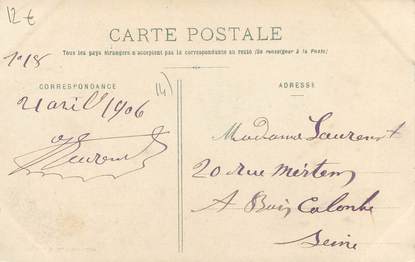 12 €
CARTE POSTALE
Tous les pays étrangers n'acceptent pas la correspondance au recto (Se renseigner à la Poste)
CORRESPONDANCE
ADRESSE
21 avril 1906
Madame Laurent
20 rue Mertens
A Bois Colombe
Seine